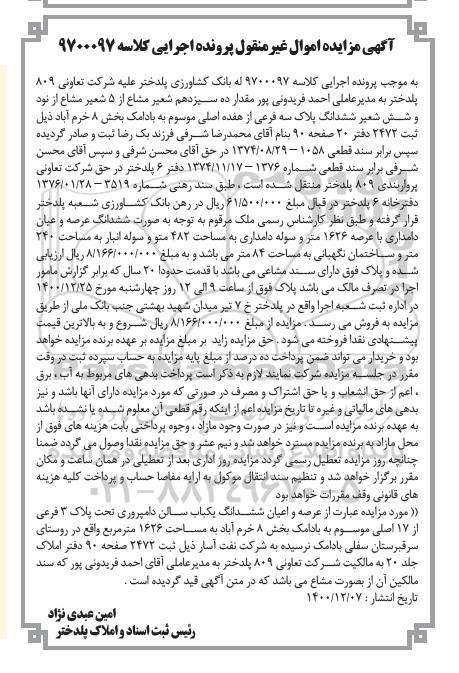 آگهی مزایده اموال غیر منقول پرونده اجرایی کلاسه ۹۷۰۰۰۹۷
به موجب پرونده اجرایی کلاسه ۹۷۰۰۰۹۷ له بانک کشاورزی پلدختر علیه شرکت تعاونی ۸۰۹
پلدختر به مدیرعاملی احمد فریدونی پور مقدار ده سیزدهم شعیر مشاع از ۵ شعیر مشاع از نود
و شش شعیر ششدانگ پلاک سه فرعی از هفده اصلی موسوم به بادامک بخش ۸ خرم آباد ذیل
ثبت ۲۴۷۲ دفتر ۲۰ صفحه ۹۰ بنام آقای محمدرضا شرفی فرزند بک رضا ثبت و صادر گردیده
سپس برابر سند قطعی ۱۰۵۸ – ۱۳۷۴/۰۸/۲۹ در حق آقای محسن شرفی و سپس آقای محسن
شرفی برابر سند قطعی شماره ۱۳۷۶ – ۱۳۷۴/۱۱/۱۷ دفتر ۶ پلدختر در حق شرکت تعاونی
پرواربندی ۸۰۹ پلدختر منتقل شده است ، طبق سند رهنی شماره ۳۵۱۹ – ۱۳۷۶/۰۱/۲۸
دفترخانه ۶ پلدختر در قبال مبلغ ۶۱/۵۰۰/۰۰۰ ریال در رهن بانک کشاورزی شعبه پلدختر
قرار گرفته و طبق نظر کارشناس رسمی ملک مرقوم به توجه به صورت ششدانگ عرصه و عیان
دامداری با عرصه ۱۶۲۶ متر و سوله دامداری به مساحت ۴۸۲ متو و سوله انبار به مساحت ۲۴۰
متر و ساختمان نگهبانی به مساحت ۸۴ متر می باشد و به مبلغ ۸/۱۶۶/۰۰۰/۰۰۰ ریال ارزیابی
شده و پلاک فوق دارای سند مشاعی می باشد با قدمت حدودا ۲۰ سال که برابر گزارش مامور
اجرا در تصرف مالک می باشد پلاک فوق از ساعت ۹ الی ۱۲ روز چهارشنبه مورخ ۱۴۰۰/۱۲/۲۵
در اداره ثبت شعبه اجرا واقع در پلدختر خ ۷ تیر میدان شهید بهشتی جنب بانک ملی از طریق
مزایده به فروش می رسد . مزایده از مبلغ ۸/۱۶۶/۰۰۰/۰۰۰ ریال شروع و به بالاترین قیمت
پیشنهادی نقدا فروخته می شود . حق مزایده زاید بر مبلغ مزایده بر عهده برنده مزایده خواهد
بود و خریدار می تواند ضمن پرداخت ده درصد از مبلغ پایه مزایده به حساب سپرده ثبت در وقت
مقرر در جلسه مزایده شرکت نمایند لازم به ذکر است پرداخت بدهی های مربوط به آب ، برق
، اعم از حق انشعاب و یا حق اشتراک و مصرف در صورتی که مورد مزایده دارای آنها باشد و نیز
بدهی های مالیاتی و غیره تا تاریخ مزایده اعم از اینکه رقم قطعی آن معلوم شده یا نشده باشد
به عهده برنده مزایده است و نیز در صورت وجود مازاد ، وجوه پرداختی بابت هزینه های فوق از
محل مازاد به برنده مزایده مسترد خواهد شد و نیم عشر و حق مزایده نقدا وصول می گردد ضمنا
چنانچه روز مزایده تعطیل رسمی گردد مزایده روز اداری بعد از تعطیلی در همان ساعت و مکان
مقرر برگزار خواهد شد و تنظیم سند انتقال موکول به ارایه مفاصا حساب و پرداخت کلیه هزینه
های قانونی وقف مقررات خواهد بود
(( مورد مزایده عبارت از عرصه و اعیان ششدانگ یکباب سالن دامپروری تحت پلاک ۳ فرعی
از ۱۷ اصلی موسوم به بادامک بخش ۸ خرم آباد به مساحت ۱۶۲۶ مترمربع واقع در روستای
سرقبرستان سفلی بادامک نرسیده به شرکت نفت آسار ذیل ثبت ۲۴۷۲ صفحه ۹۰ دفتر املاک
جلد ۲۰ به مالکیت شرکت تعاونی ۸۰۹ پلدختر به مدیرعاملی آقای احمد فریدونی پور که سند
مالکین آن از بصورت مشاع می باشد که در متن آگهی قید گردیده است .
تاریخ انتشار : ۱۴۰۰/۱۲/۰۷
امین عبدی نژاد
رئیس ثبت اسناد و املاک پلدختر